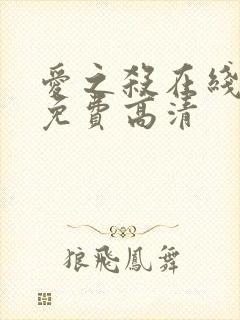 愛之殺在綫
免費高清
狼飛鳳舞